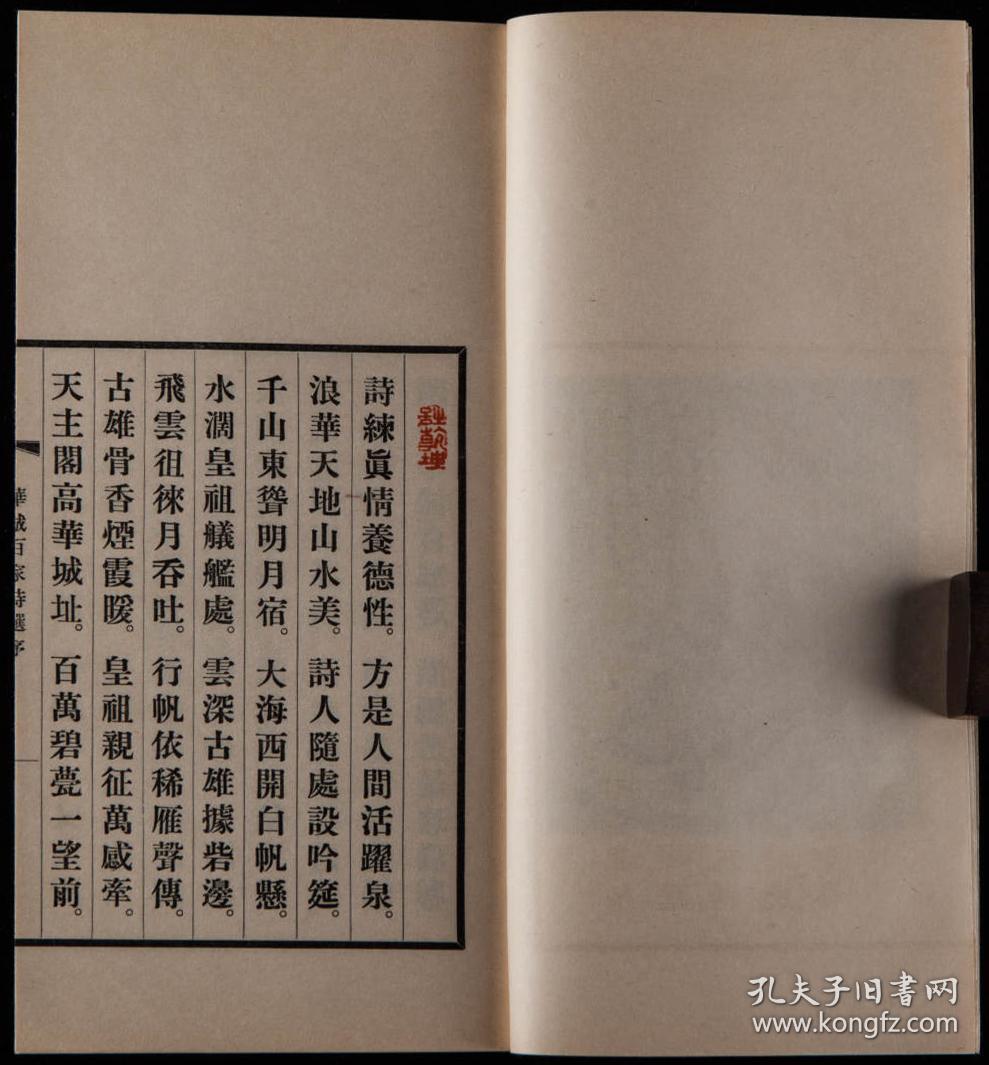 詩練眞情養德性。方是人間活躍泉。
浪華天地山水美。詩人隨處設吟筵。
千山東聳明月宿。大海西開白帆懸。
水濶皇祖艤艦處。雲深古雄據砦邊。
飛雲徂徠月吞吐。行帆依稀雁聲傳。
古雄骨香煙霞暖。皇祖親征萬感牽。
天主閣高華城址。百萬碧甍一望前。
華城百家詩選序
孔夫子旧书网
www.kongfz.com